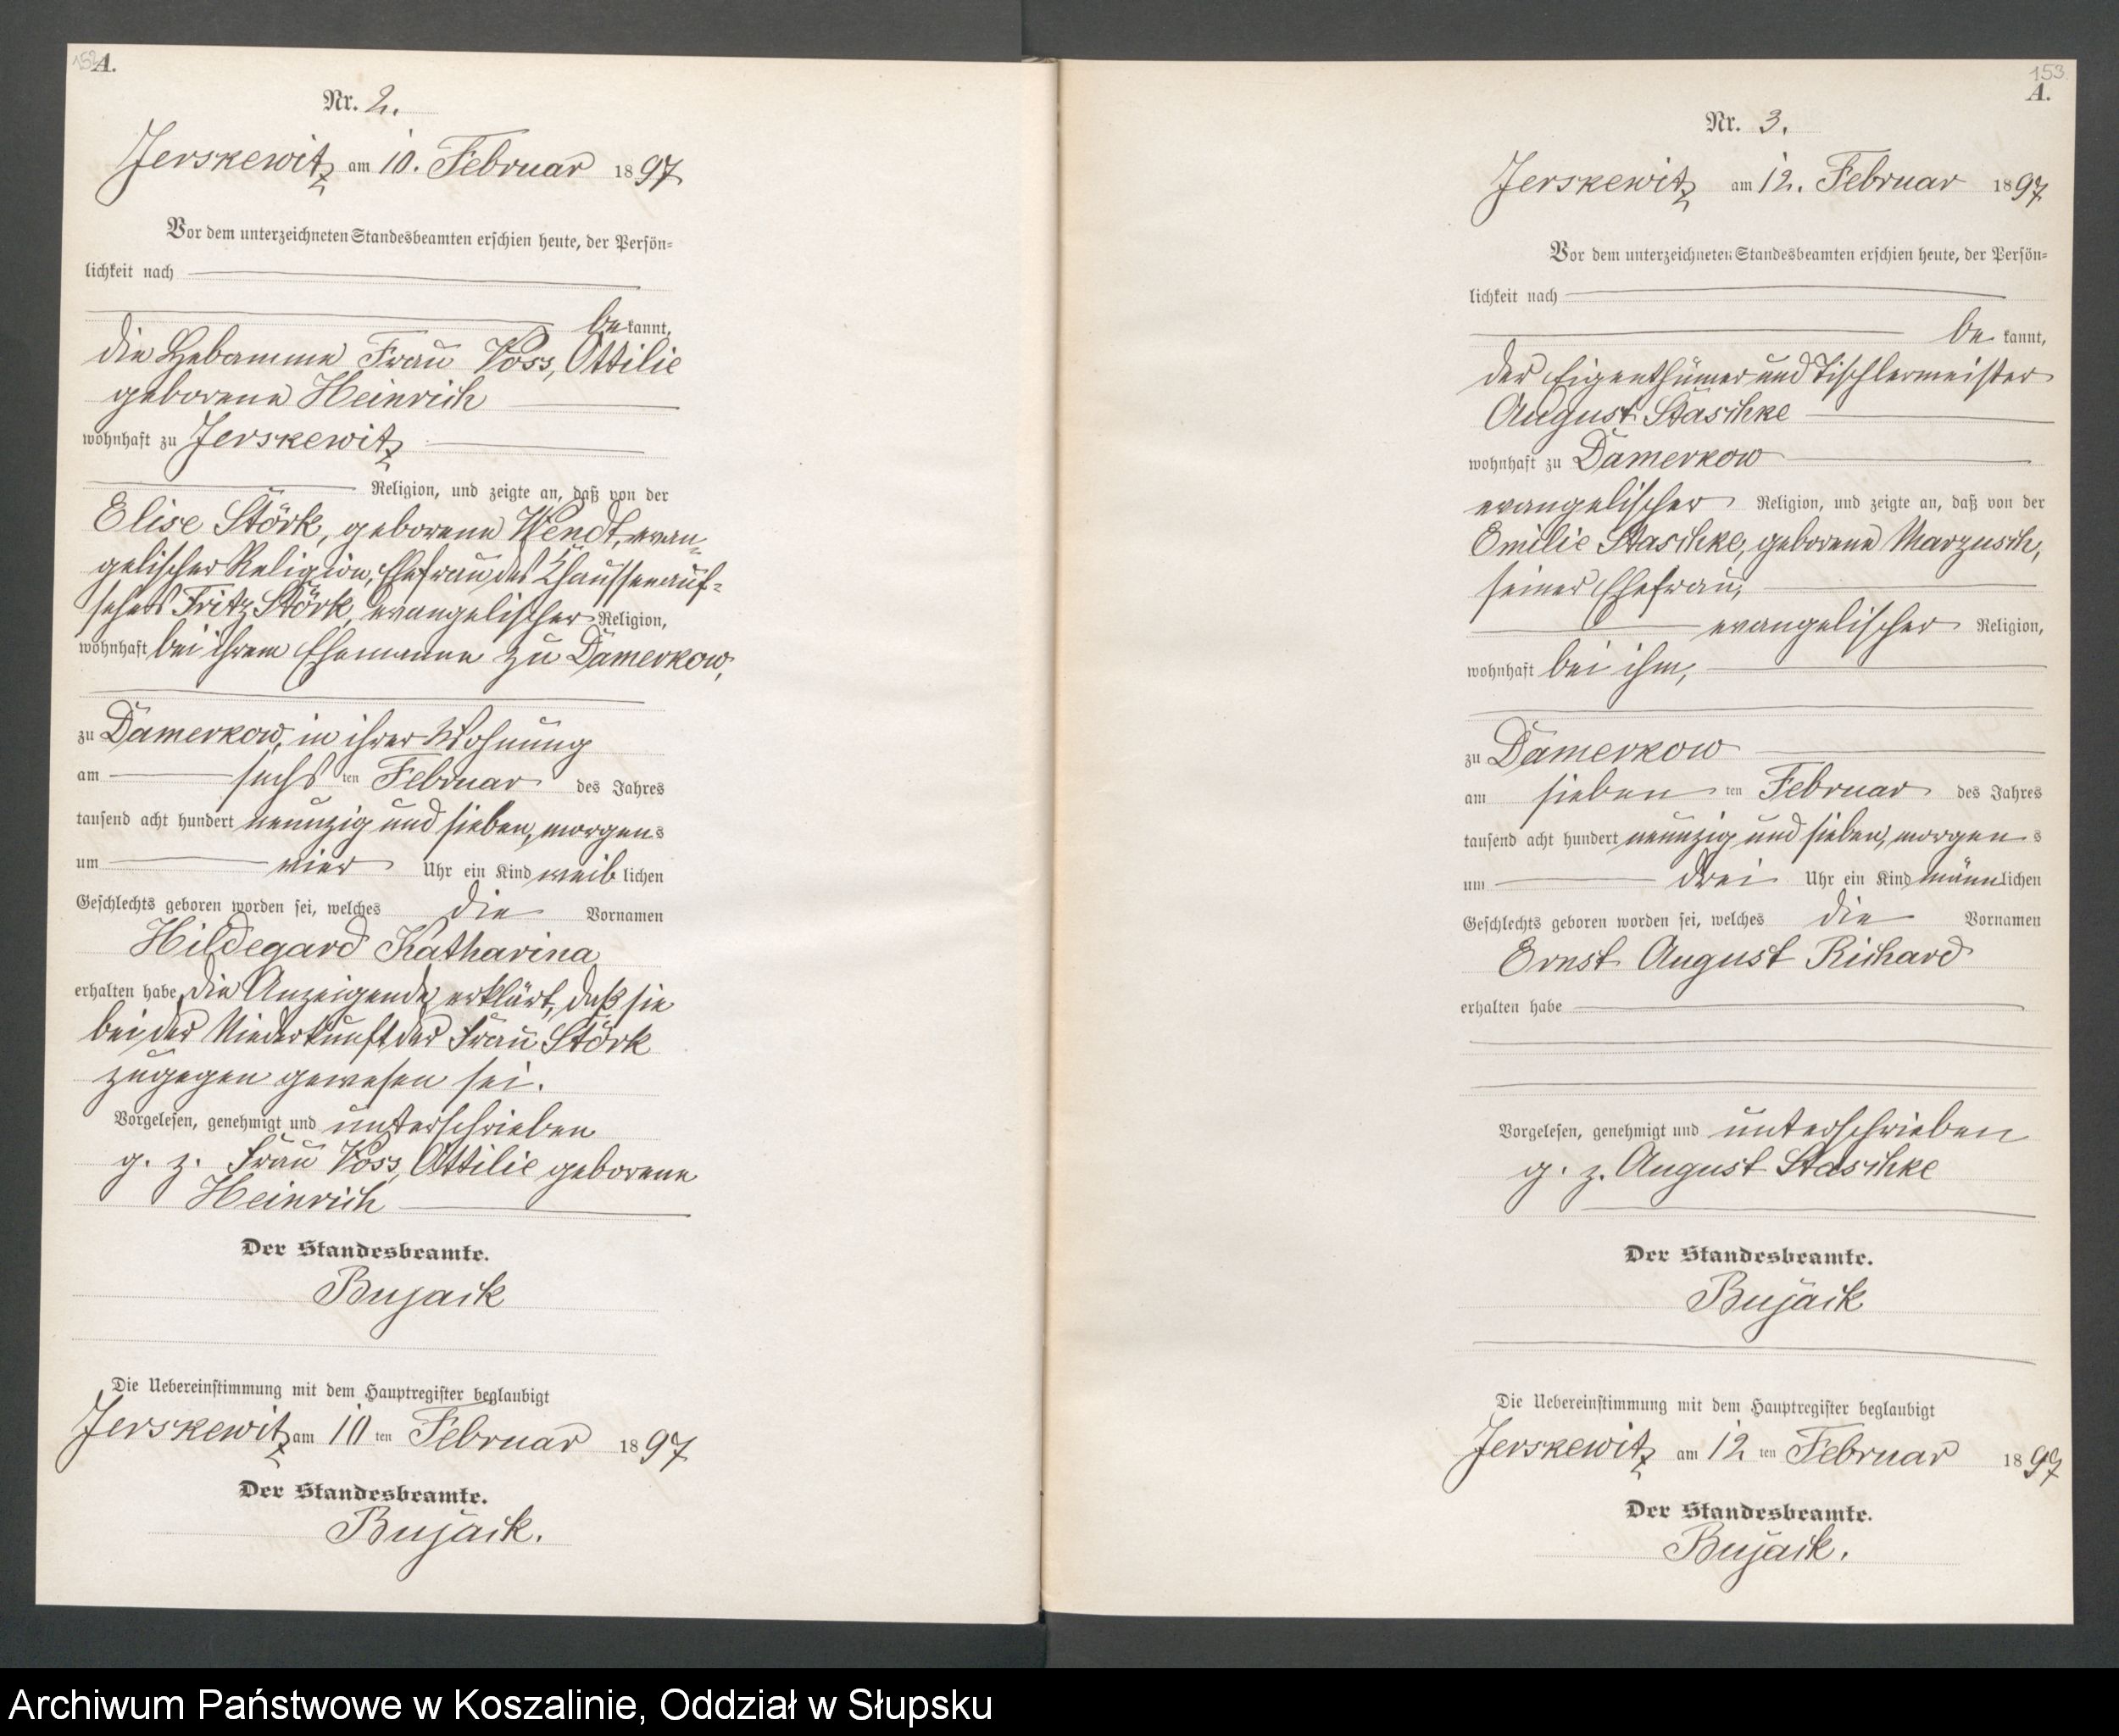 152
A.
Nr. 2.
Jerskewitz am 10. Februar 1897
Vor dem unterzeichneten Standesbeamten erschien heute, der Persön-
lichkeit nach
bekannt,
die Hebamme Frau Voss, Ottilie
geborene Heinrich
wohnhaft zu Jerskewitz
Religion, und zeigte an, daß von der
Elise Störk, geborene Wendt, evan-
gelischer Religion, Ehefrau des Chausseeauf-
sehers Fritz Störk, evangelischer Religion,
wohnhaft bei ihrem Ehemanne zu Damerkow,
zu Damerkow, in ihrer Wohnung
am sechsten Februar des Jahres
tausend acht hundert neunzig und sieben, morgens
um vier Uhr ein Kind weiblichen
Geschlechts geboren worden sei, welches die Vornamen
Hildegard Katharina
erhalten habe, die Anzeigende erklärt, daß sie
bei der Niederkunft der Frau Störk
zugegen gewesen sei.
Vorgelesen, genehmigt und unterschrieben
g. z. Frau Voss, Ottilie geborene
Heinrich
Der Standesbeamte.
Bujack
Die Uebereinstimmung mit dem Hauptregister beglaubigt
Jerskewitz am 10ten Februar 1897
Der Standesbeamte.
Bujack.
153
A.
Nr. 3.
Jerskewitz am 12. Februar 1897
Vor dem unterzeichneten Standesbeamten erschien heute, der Persön-
lichkeit nach
bekannt,
der Eigenthümer und Tischlermeister
August Staschke
wohnhaft zu Damerkow
evangelischer Religion, und zeigte an, daß von der
Emilie Staschke, geborene Marzusch,
seiner Ehefrau,
evangelischer Religion,
wohnhaft bei ihm,
zu Damerkow
am siebenten Februar des Jahres
tausend acht hundert neunzig und sieben, morgens
um drei Uhr ein Kind männlichen
Geschlechts geboren worden sei, welches die Vornamen
Ernst August Richard
erhalten habe
Vorgelesen, genehmigt und unterschrieben
g. z. August Staschke
Der Standesbeamte.
Bujack
Die Uebereinstimmung mit dem Hauptregister beglaubigt
Jerskewitz am 12ten Februar 1897
Der Standesbeamte.
Bujack.
Archiwum Państwowe w Koszalinie, Oddział w Słupsku